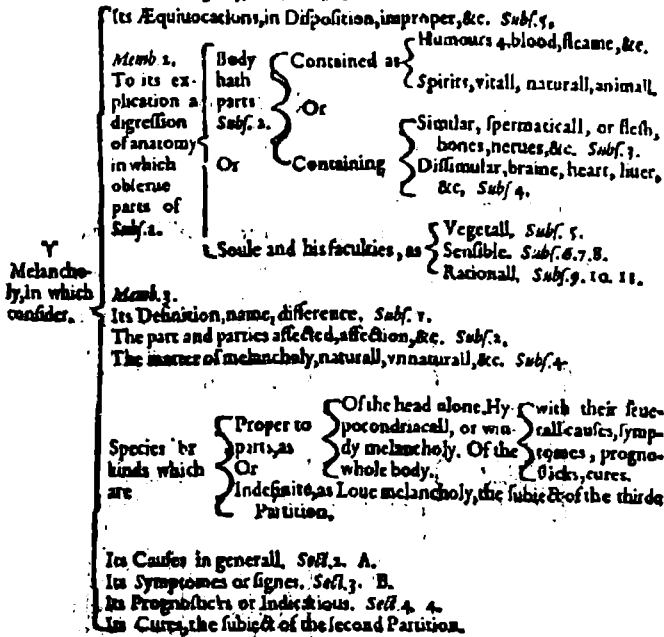 Its Æquiuocations, in Diſpoſition, improper, &c. Subſ. 5.
Memb. 2.
To its ex-
plication a
digreſſion
of anatomy
in which
obſerue
parts of
Subſ. 1.
Body
hath
parts
Subſ. 2.
Or
Contained as
Humours 4. blood, fleame, &c.
Spirits, vitall, naturall, animall.
Or
Containing
Similar, ſpermaticall, or fleſh,
bones, nerues, &c. Subſ. 3.
Diſſimular, braine, heart, liuer,
&c, Subſ 4.
Soule and his faculties, as
Vegetall. Subſ. 5.
Senſible. Subſ. 6. 7. 8.
Rationall, Subſ. 9. 10. 11.
♈
Melancho-
ly, in which
conſider.
Memb. 3.
Its Definition, name, difference, Subſ. 1.
The part and parties affected, affection, &c. Subſ. 2.
The matter of melancholy, naturall, vnnaturall, &c. Subſ. 4.
Species or
kinds which
are
Proper to
parts, as
Or
Of the head alone, Hy-
pocondriacall, or win-
dy melancholy. Of the
whole body.
with their ſeue-
rall cauſes, ſymp-
tomes, progno-
ſticks, cures.
Indefinite, as Loue melancholy, the ſubiect of the third
Partition.
Its Cauſes in generall. Sect. 2. A.
Its Symptomes or ſignes. Sect. 3. B.
Its Prognoſticks or Indications. Sect. 4. 4.
Its Cures, the ſubiect of the ſecond Partition.